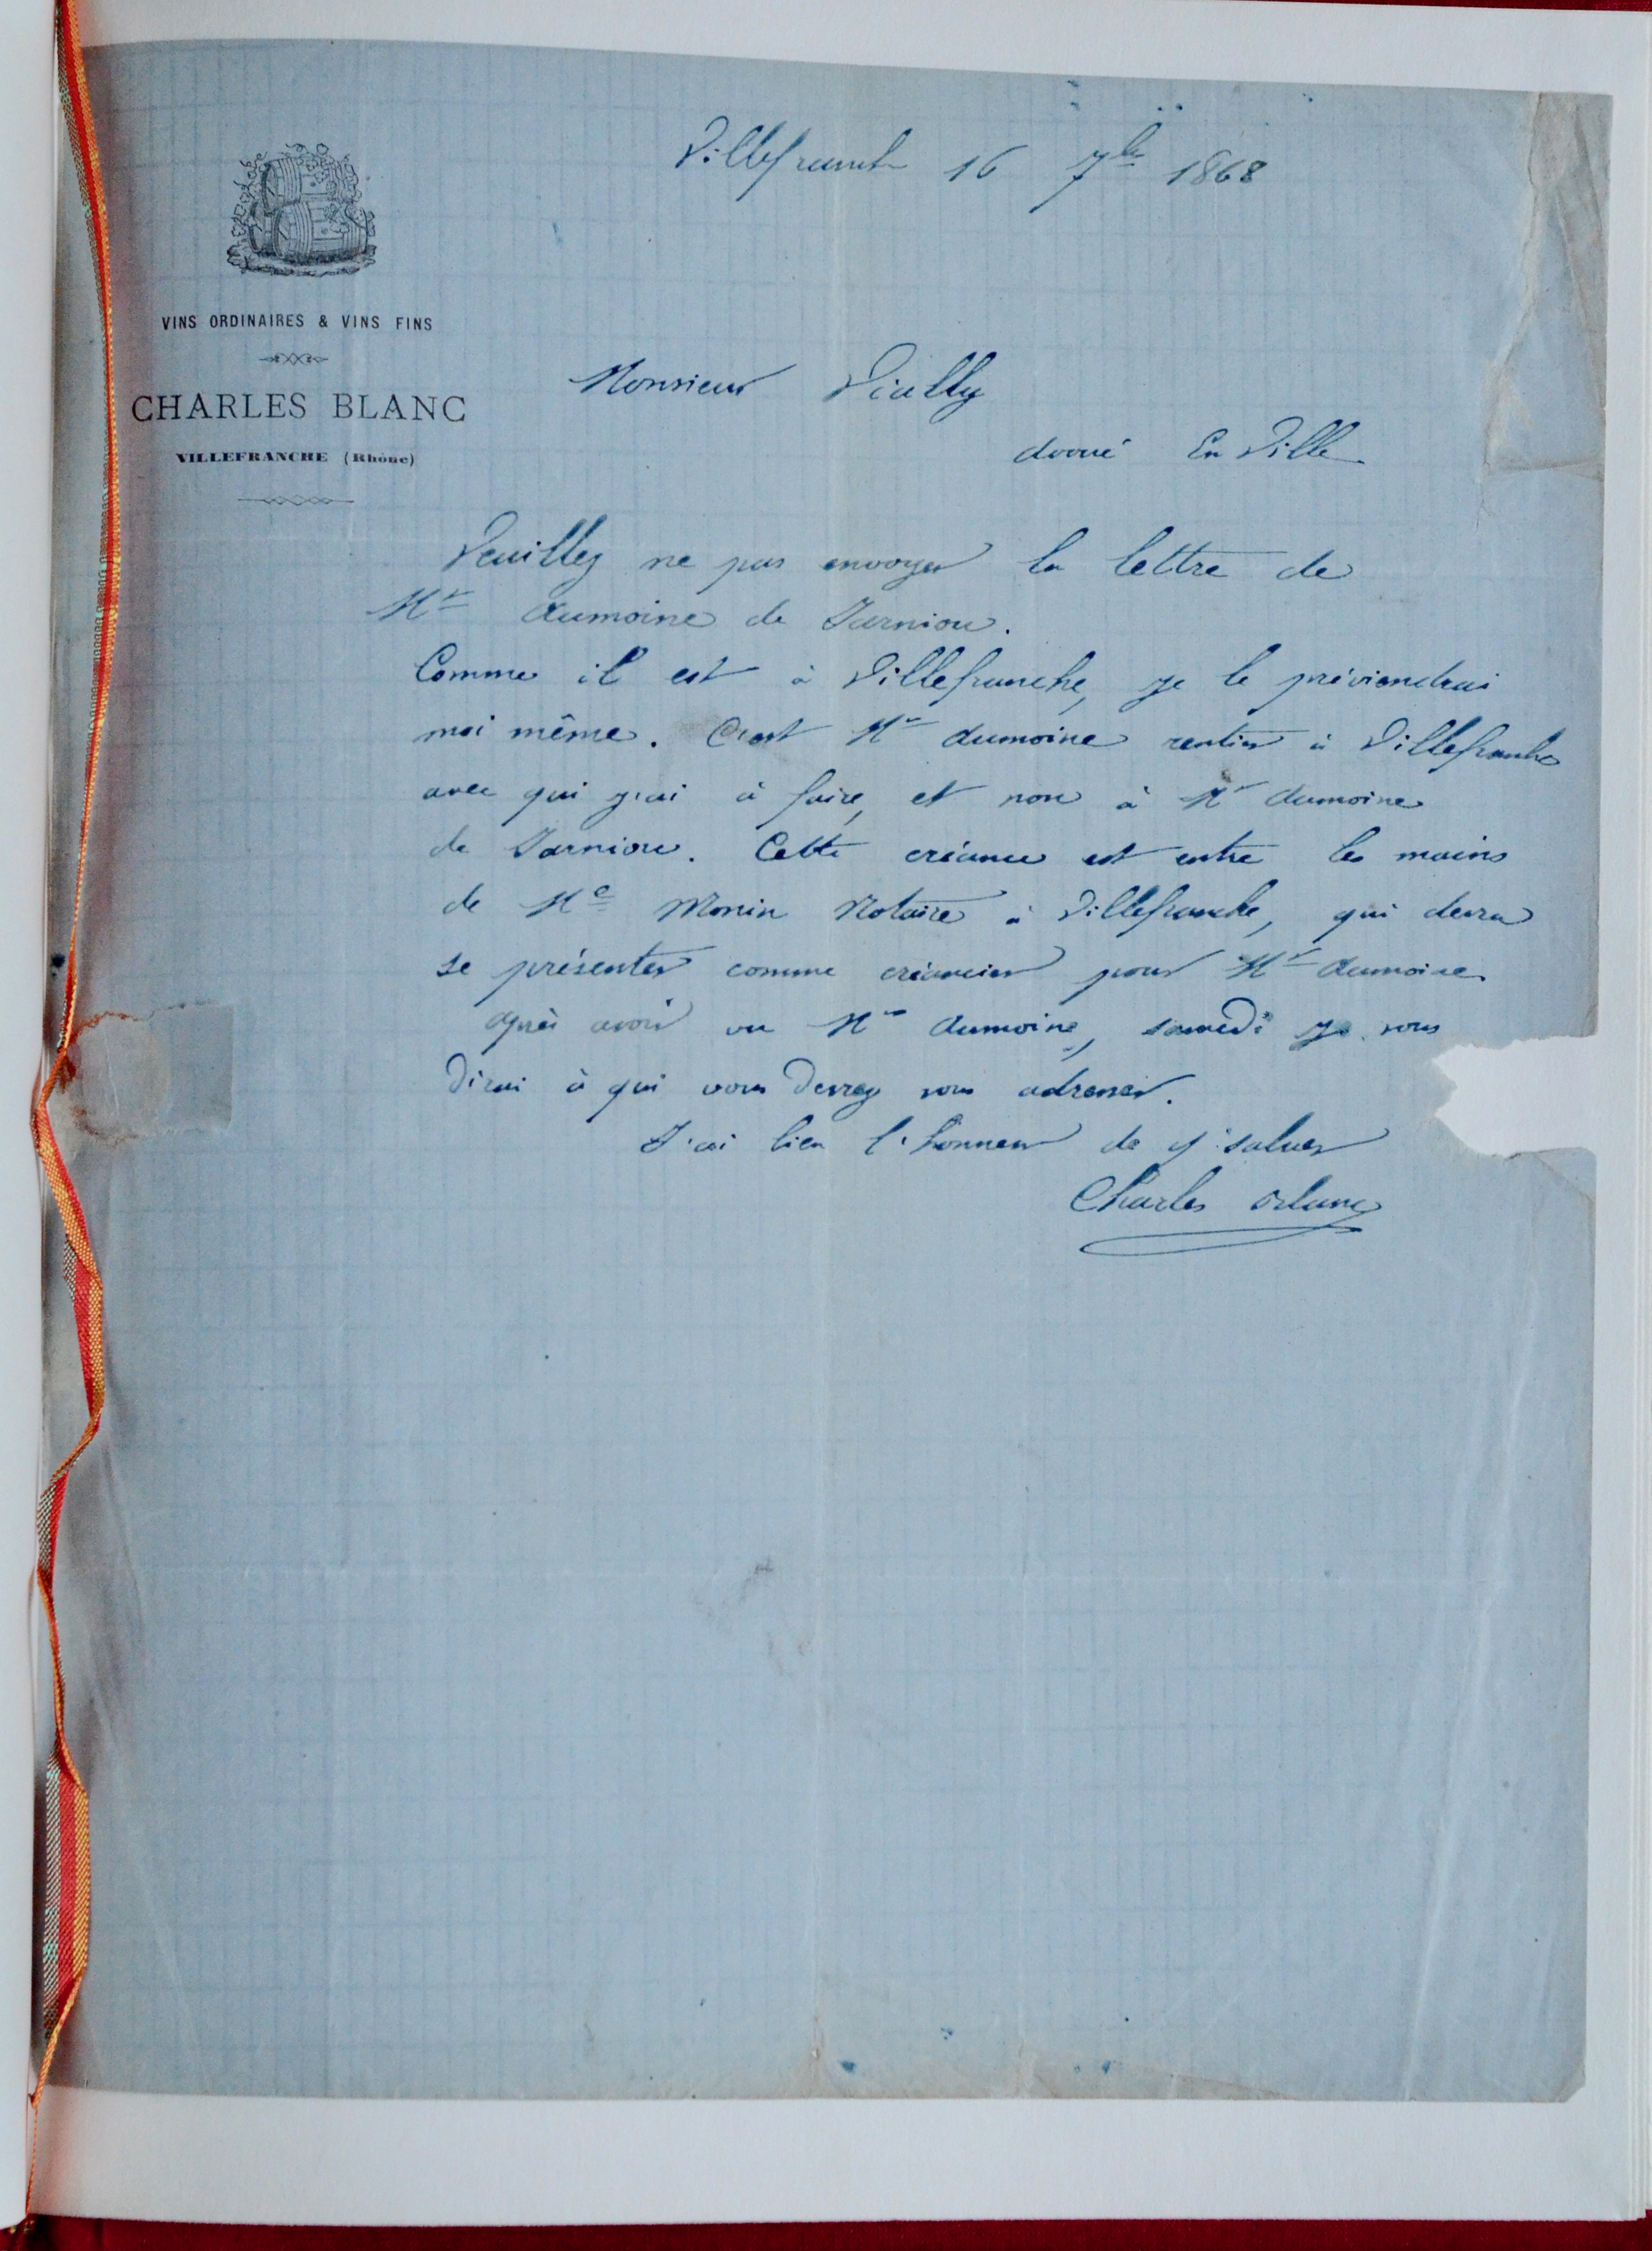 Villefranche 16 7bre 1868
VINS ORDINAIRES & VINS FINS
CHARLES BLANC
VILLEFRANCHE (Rhône)
Monsieur Vially
avoué En Ville
Veuillez ne pas envoyer la lettre de
Mr dumoine de Jarniou.
Comme il est à Villefranche, je le préviendrai
moi même. C'est Mr dumoine rentier à Villefranche
avec qui j'ai à faire, et non à Mr dumoine
de Jarniou. Cette créance est entre les mains
de Me Monin Notaire à Villefranche, qui devra
se présenter comme créancier pour Mr dumoine
après avoir vu Mr dumoine, samedi je vous
dirai à qui vous devrez vous adresser.
J'ai bien l'honneur de v. saluer
Charles Blanc